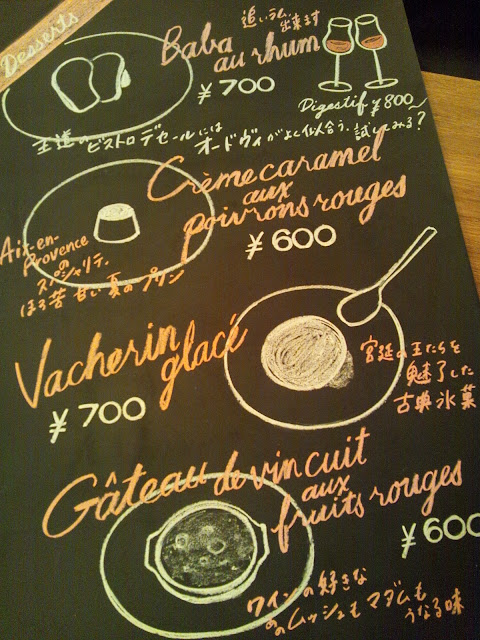 Desserts
Baba
au rhum
追いラム、
出来ます
¥700
Digestif ¥800~
王道のビストロデセールには
オードヴィがよく似合う、試してみる?
Crème caramel
aux
poivrons rouges
¥600
Aix-en-
Provence
の
スペシャリテ、
ほろ苦甘い夏のプリン
Vacherin
glacé
¥700
宮廷の王たちを
魅了した
古典氷菓
Gâteau de vin cuit
aux
fruits rouges
¥600
ワインの好きな
ムッシュもマダムも
うなる味